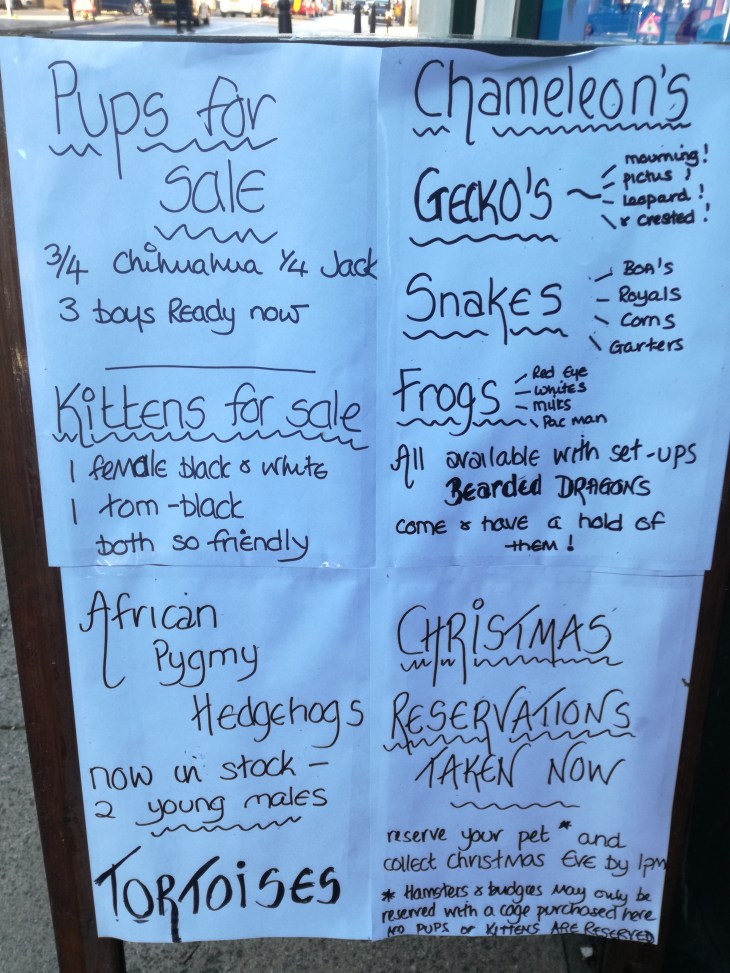 Pups for
Sale
3/4 Chihuahua 1/4 Jack
3 boys Ready now
Kittens for sale
1 female black & white
1 tom - black
both so friendly
Chameleon's
GECKO'S
mourning!
pictus!
Leopard!
& crested!
Snakes
BOA'S
Royals
Corns
Garters
Frogs
Red Eye
Whites
Milks
Pac man
All available with set-ups
Bearded DRAGONS
come & have a hold of
them!
African
Pygmy
Hedgehogs
now in stock -
2 young males
TORTOISES
CHRISTMAS
RESERVATIONS
TAKEN NOW
reserve your pet * and
collect Christmas Eve by 1pm
* Hamsters & budgies may only be
reserved with a cage purchased here
NO PUPS or KITTENS ARE RESERVED